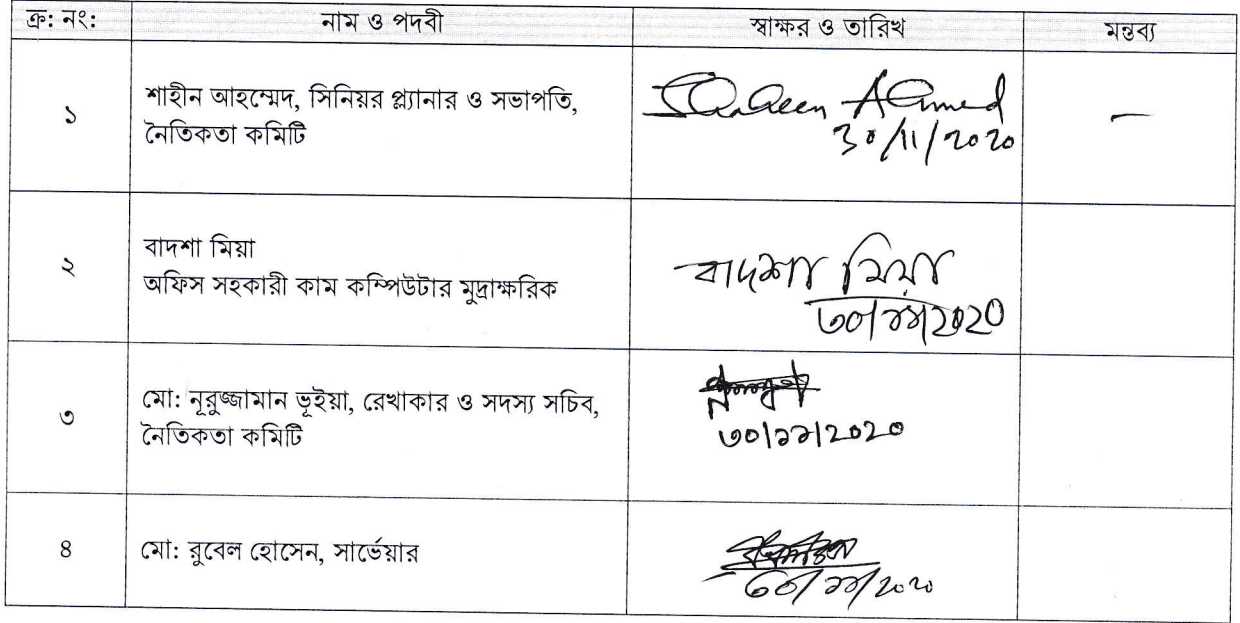 ক্র: নং: নাম ও পদবী স্বাক্ষর ও তারিখ মন্তব্য
১ শাহীন আহম্মেদ, সিনিয়র প্ল্যানার ও সভাপতি,
নৈতিকতা কমিটি
Shaheen Ahmed
30/11/2020
–
২ বাদশা মিয়া
অফিস সহকারী কাম কম্পিউটার মুদ্রাক্ষরিক
বাদশা মিয়া
৩০/১১/2020
৩ মো: নূরুজ্জামান ভূইয়া, রেখাকার ও সদস্য সচিব,
নৈতিকতা কমিটি
৩০/১১/2০2০
৪ মো: রুবেল হোসেন, সার্ভেয়ার
৩০/১১/2020